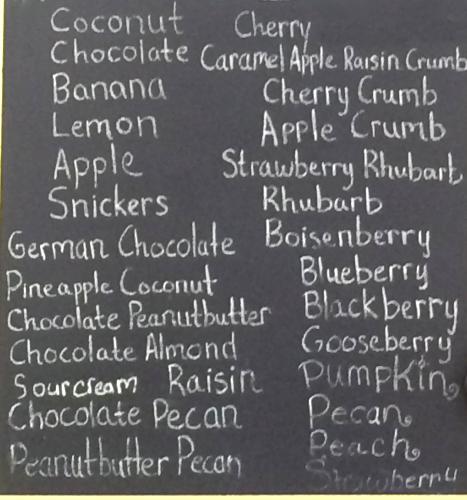 Coconut
Chocolate
Banana
Lemon
Apple
Snickers
German Chocolate
Pineapple Coconut
Chocolate Peanutbutter
Chocolate Almond
Sourcream Raisin
Chocolate Pecan
Peanutbutter Pecan
Cherry
Caramel Apple Raisin Crumb
Cherry Crumb
Apple Crumb
Strawberry Rhubarb
Rhubarb
Boisenberry
Blueberry
Blackberry
Gooseberry
Pumpkin
Pecan
Peach
Strawberry